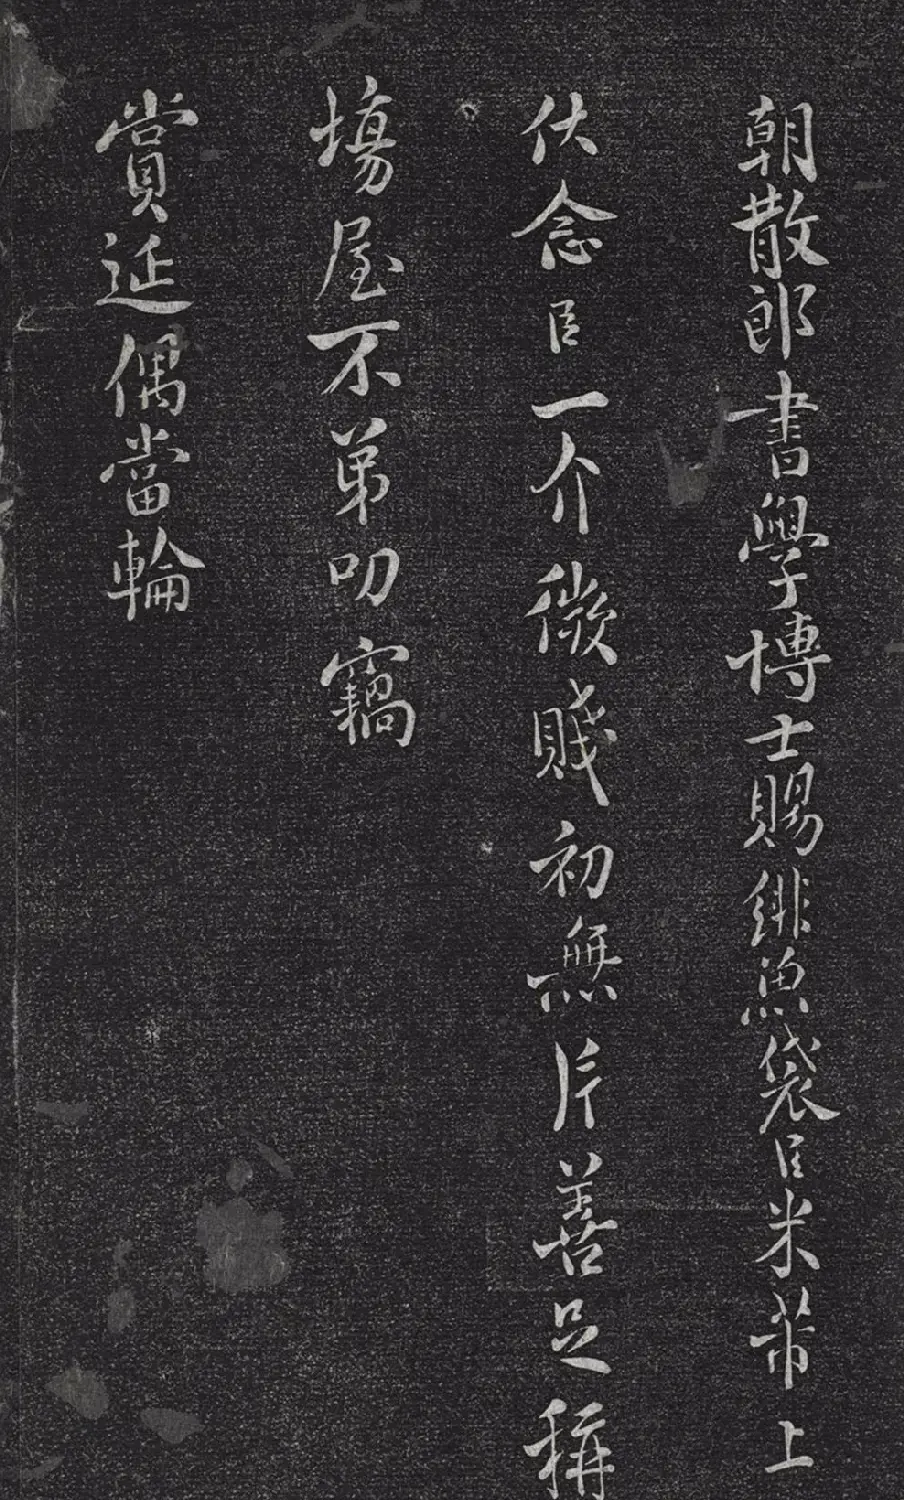 朝散郎書學博士賜緋魚袋臣米芾上
伏念臣一介微賤初無片善足稱
塲屋不弟叨竊
賞延偶當輪